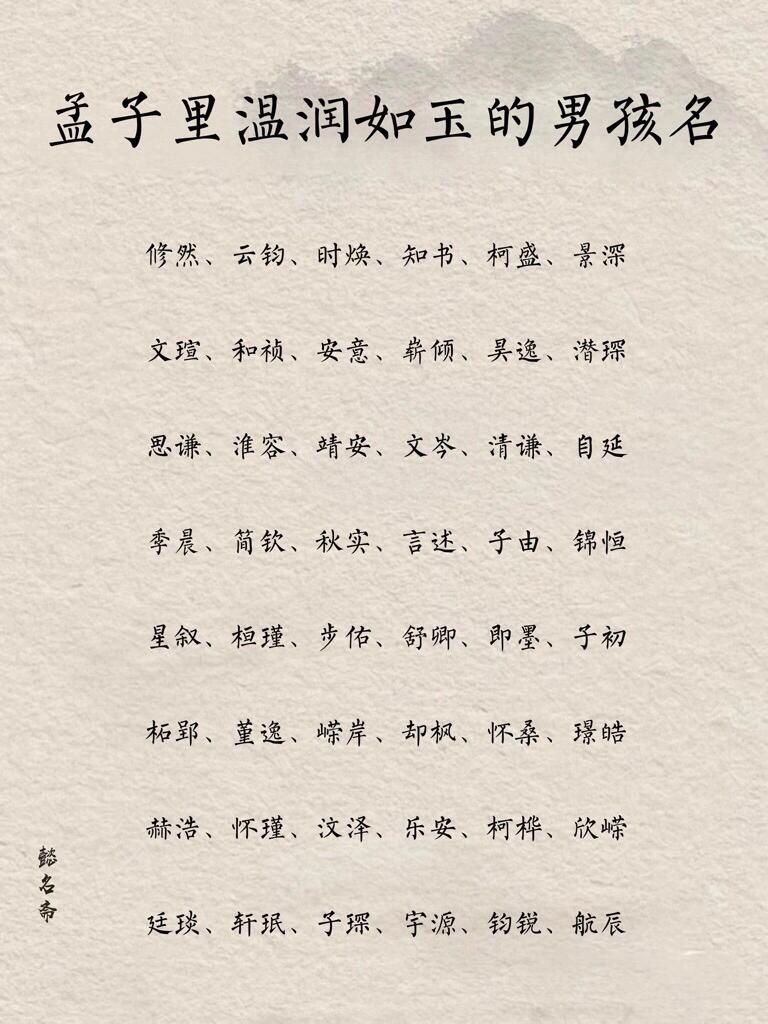 孟子里温润如玉的男孩名
修然、云钧、时焕、知书、柯盛、景深
文瑄、和祯、安意、崭倾、昊逸、潜琛
思谦、淮容、靖安、文岑、清谦、自延
季晨、简钦、秋实、言述、子由、锦恒
星叙、桓瑾、步佑、舒卿、即墨、子初
柘郢、堇逸、嵘岸、却枫、怀桑、璟皓
赫浩、怀瑾、汶泽、乐安、柯桦、欣嵘
廷琰、轩珉、子琛、宇源、钧锐、航辰
懿名斋